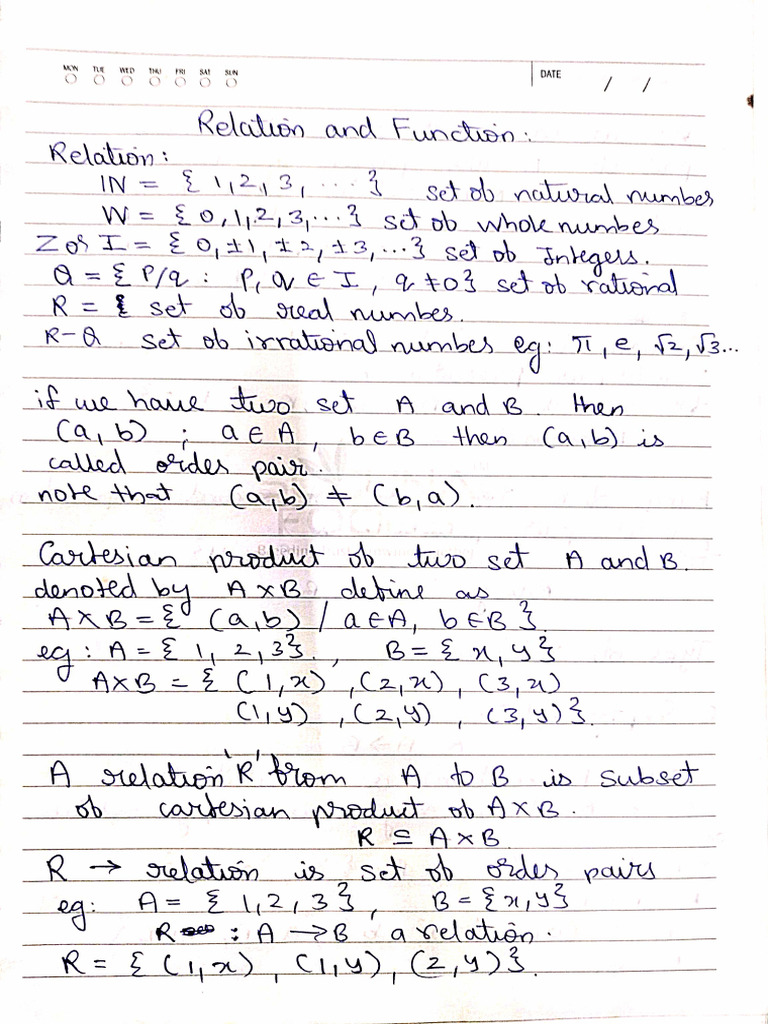 MON TUE WED THU FRI SAT SUN
DATE / /
Relation and Function:
Relation:
IN = { 1, 2, 3, ... } set of natural number
W = { 0, 1, 2, 3, ... } set of whole number
Z or I = { 0, ±1, ±2, ±3, ... } set of Integers.
Q = { P/q : P, q ∈ I, q ≠ 0 } set of rational
R = { set of real number.
R-Q set of irrational number eg: π, e, √2, √3...
if we have two set A and B. then
(a, b) ; a ∈ A, b ∈ B then (a, b) is
called order pair.
note that (a, b) ≠ (b, a).
Cartesian product of two set A and B.
denoted by A × B define as
A × B = { (a, b) / a ∈ A, b ∈ B }.
eg: A = { 1, 2, 3 }., B = { x, y }
A × B = { (1, x), (2, x), (3, x)
(1, y), (2, y), (3, y) }.
A relation 'R' from A to B is subset
of cartesian product of A × B.
R ⊆ A × B.
R → relation is set of order pairs
eg: A = { 1, 2, 3 }, B = { x, y }
R : A → B a relation.
R = { (1, x), (1, y), (2, y) }.